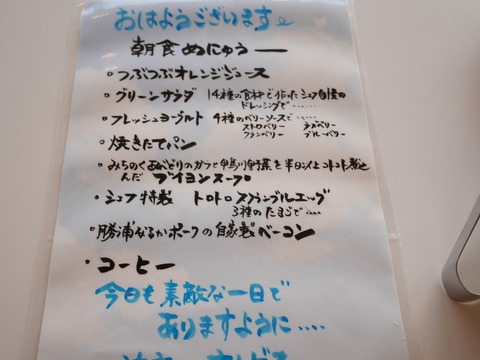 おはようございます
朝食めにゅうー
・つぶつぶオレンジジュース
・グリーンサラダ 14種の食材で作ったシェフ自慢の
ドレッシングで……
・フレッシュヨーグルト 4種のベリーソースで……
ストロベリー ラズベリー
クランベリー ブルーベリー
・焼きたてパン
・みちのくあかどりのガラと鴨川野菜を半日以上コトコト煮込
んだ ブイヨンスープ
・シェフ特製 トロトロスクランブルエッグ
3種のたまごで……
・勝浦なるかポークの自家製ベーコン
・コーヒー
今日も素敵な一日で
ありますように....